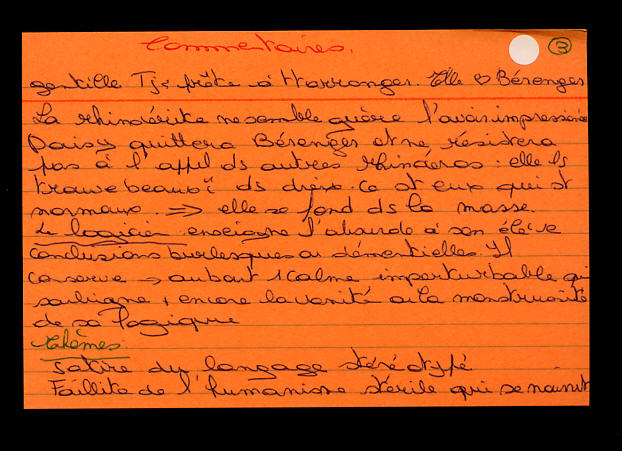 Commentaires.
3
gentille Tjs prête à s'arranger. Elle ♡ Bérenger
La rhinocérite ne semble guère l'avoir impressionné
Daisy quittera Bérenger et ne résistera
pas à l'appel ds autres rhinocéros : elle ls
trouve beaux "ds dieux. Ce st eux qui st
normaux. => elle se fond ds la masse.
Le logicien enseigne l'absurde à son élève
conclusions burlesques ou démentielles. Il
conserve → au bout 1 calme imperturbable qui
souligne + encore la vanité ou la monstruosité
de sa logique
Thèmes.
Satire du langage stéréotypé
Faillite de l'humanisme stérile qui se nourrit